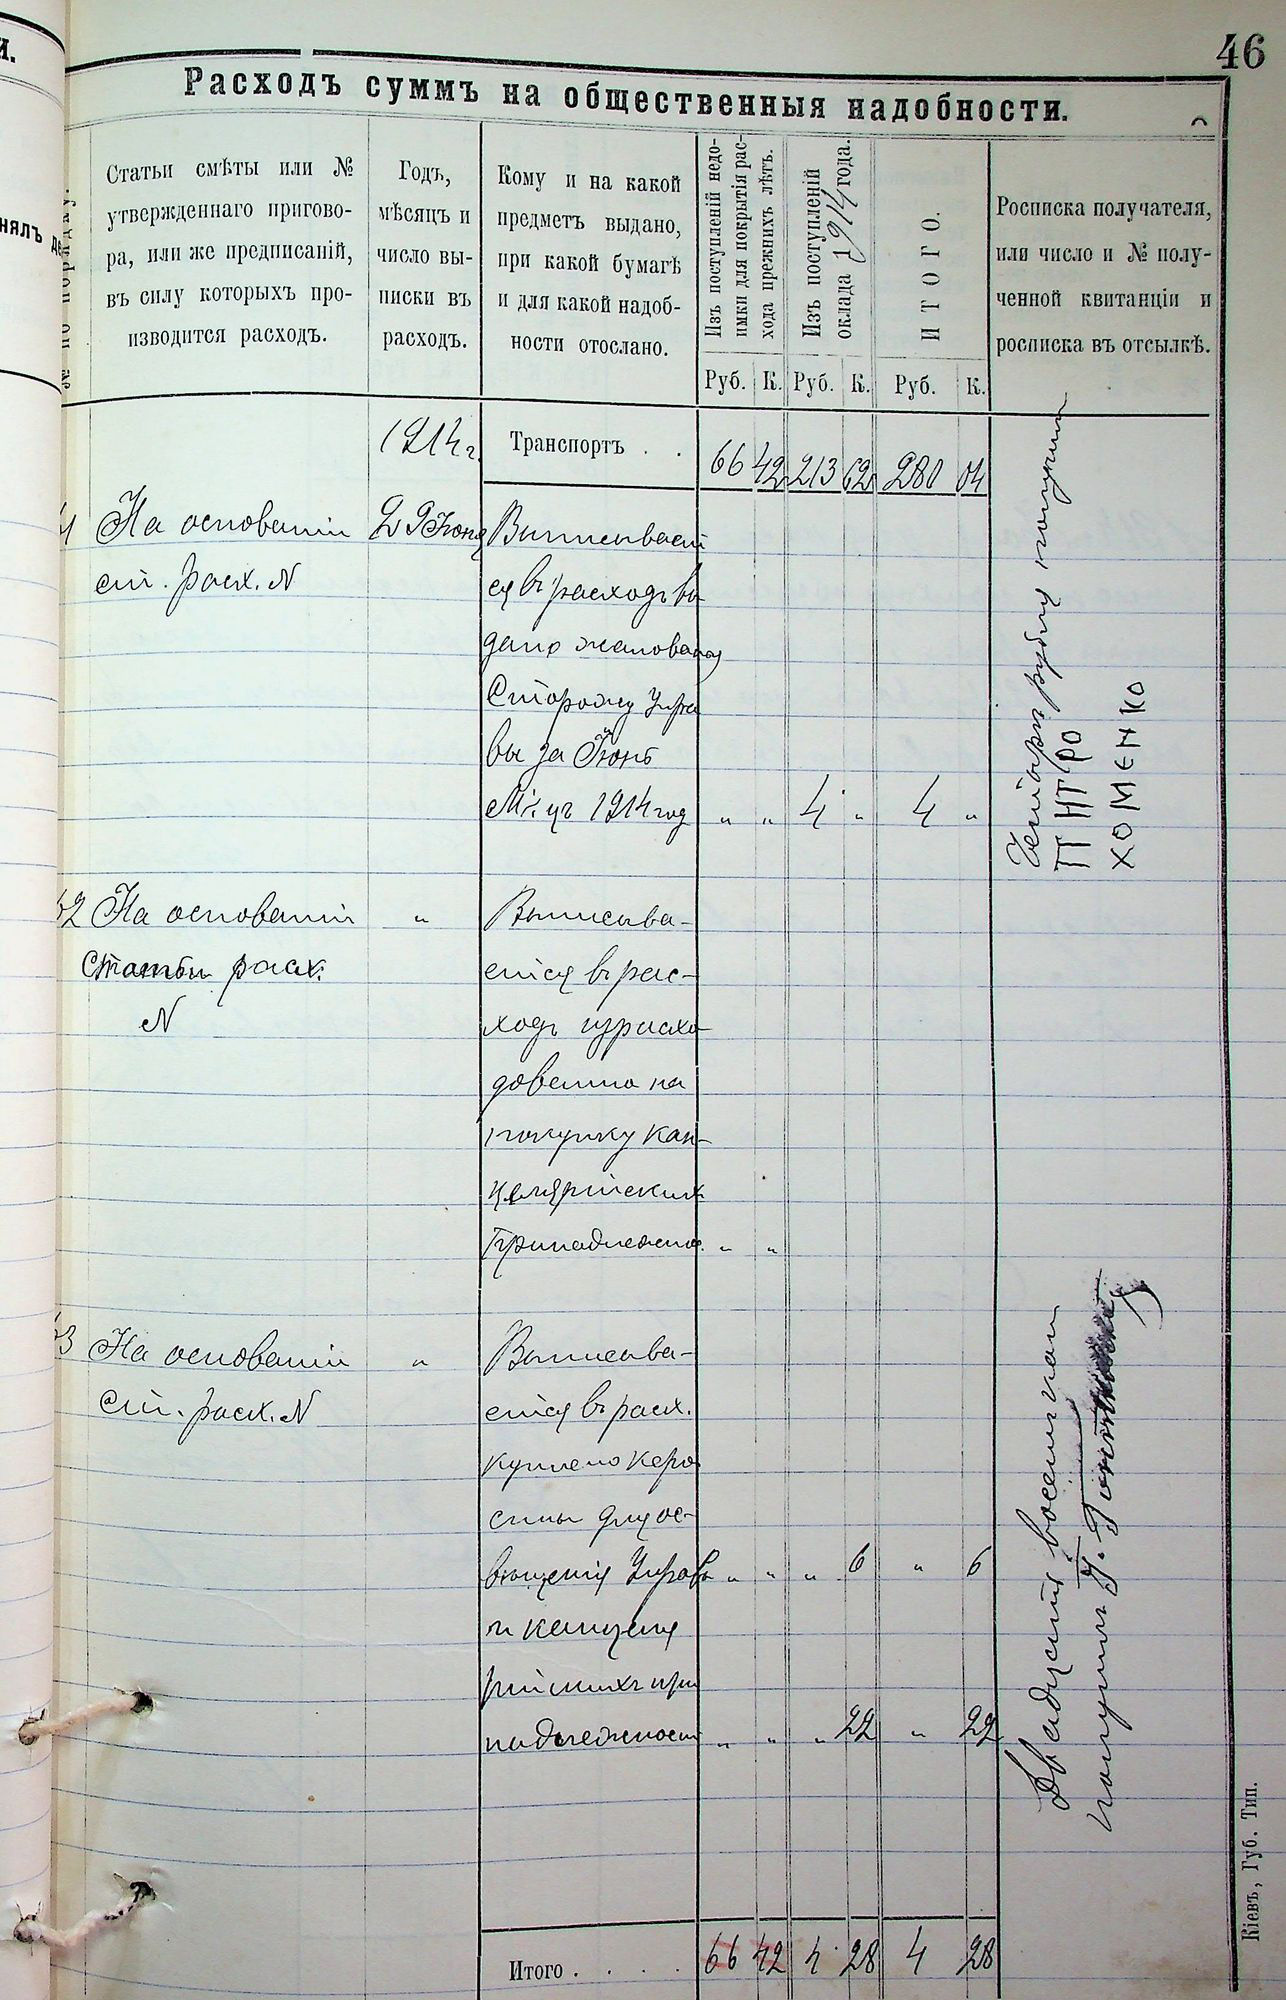 46
Расходъ суммъ на общественныя надобности.
№ по порядку.
Статьи смѣты или №
утвержденнаго пригово-
ра, или же предписаній,
въ силу которыхъ про-
изводится расходъ.
Годъ,
мѣсяцъ и
число вы-
писки въ
расходъ.
Кому и на какой
предметъ выдано,
при какой бумагѣ
и для какой надоб-
ности отослано.
Изъ поступленій недо-
имки для покрытія рас-
хода прежнихъ лѣтъ.
Изъ поступленій
оклада 1914 года.
ИТОГО.
Росписка получателя,
или число и № полу-
ченной квитанціи и
росписка въ отсылкѣ.
Руб. К. Руб. К. Руб. К.
1914 г. Транспортъ . . 66 42 213 62 280 04
На основаніи 29 Іюня Выписывает
ст. расх. N
ся въ расходъ вы
дано жалованья
Сторожу Упра
вы за Іюнь
М-цъ 1914 год " " 4 " 4 "
Четыри рубля получил
ПНТРО
ХОМЕНКО
52 На основаніи " Выписыва-
Статьи расх. ется въ рас-
N ходъ израсхо
довенно на
покупку кан-
целяріских
принадлежнос. " "
53 На основаніи " Выписыва-
ст. расх. N ется въ расх.
куплено керо
сины для ос-
вещенія Управы " " " 6 " 6
и канцеля
рійскихъ при
надлежност " " " 22 " 22
Двадцать восемь коп
получилъ
Итого . . . . 66 42 4 28 4 28
Кіевъ, Губ. Тип.